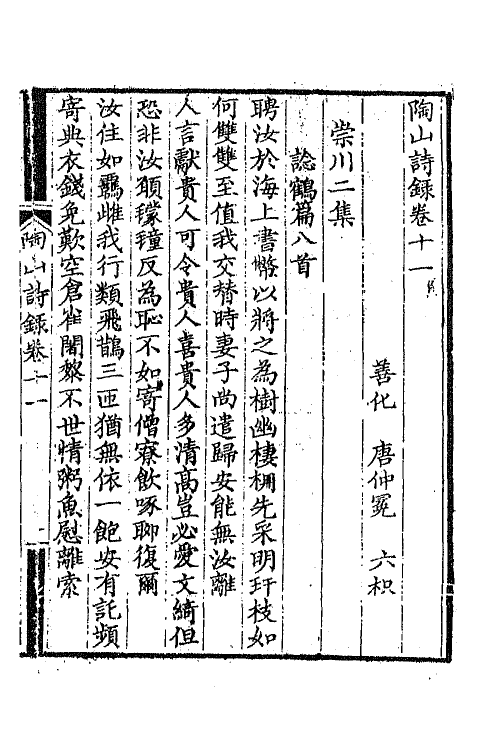 陶山詩録卷十一
善化 唐仲冕 六枳
崇川二集
諗鶴篇八首
聘汝於海上書幣以將之為樹幽棲柵先采明玕枝如
何雙雙至值我交替時妻子尚遣歸安能無汝離
人言獻貴人可令貴人喜貴人多清高豈必愛文綺但
恐非汝頭氃氋反為恥不如寄僧寮飲啄聊復爾
汝住如鸜雌我行類飛鵲三匝猶無依一飽安有託頻
寄典衣錢免歎空倉雀闍黎不世情粥魚慰離索
陶山詩録卷十一
一